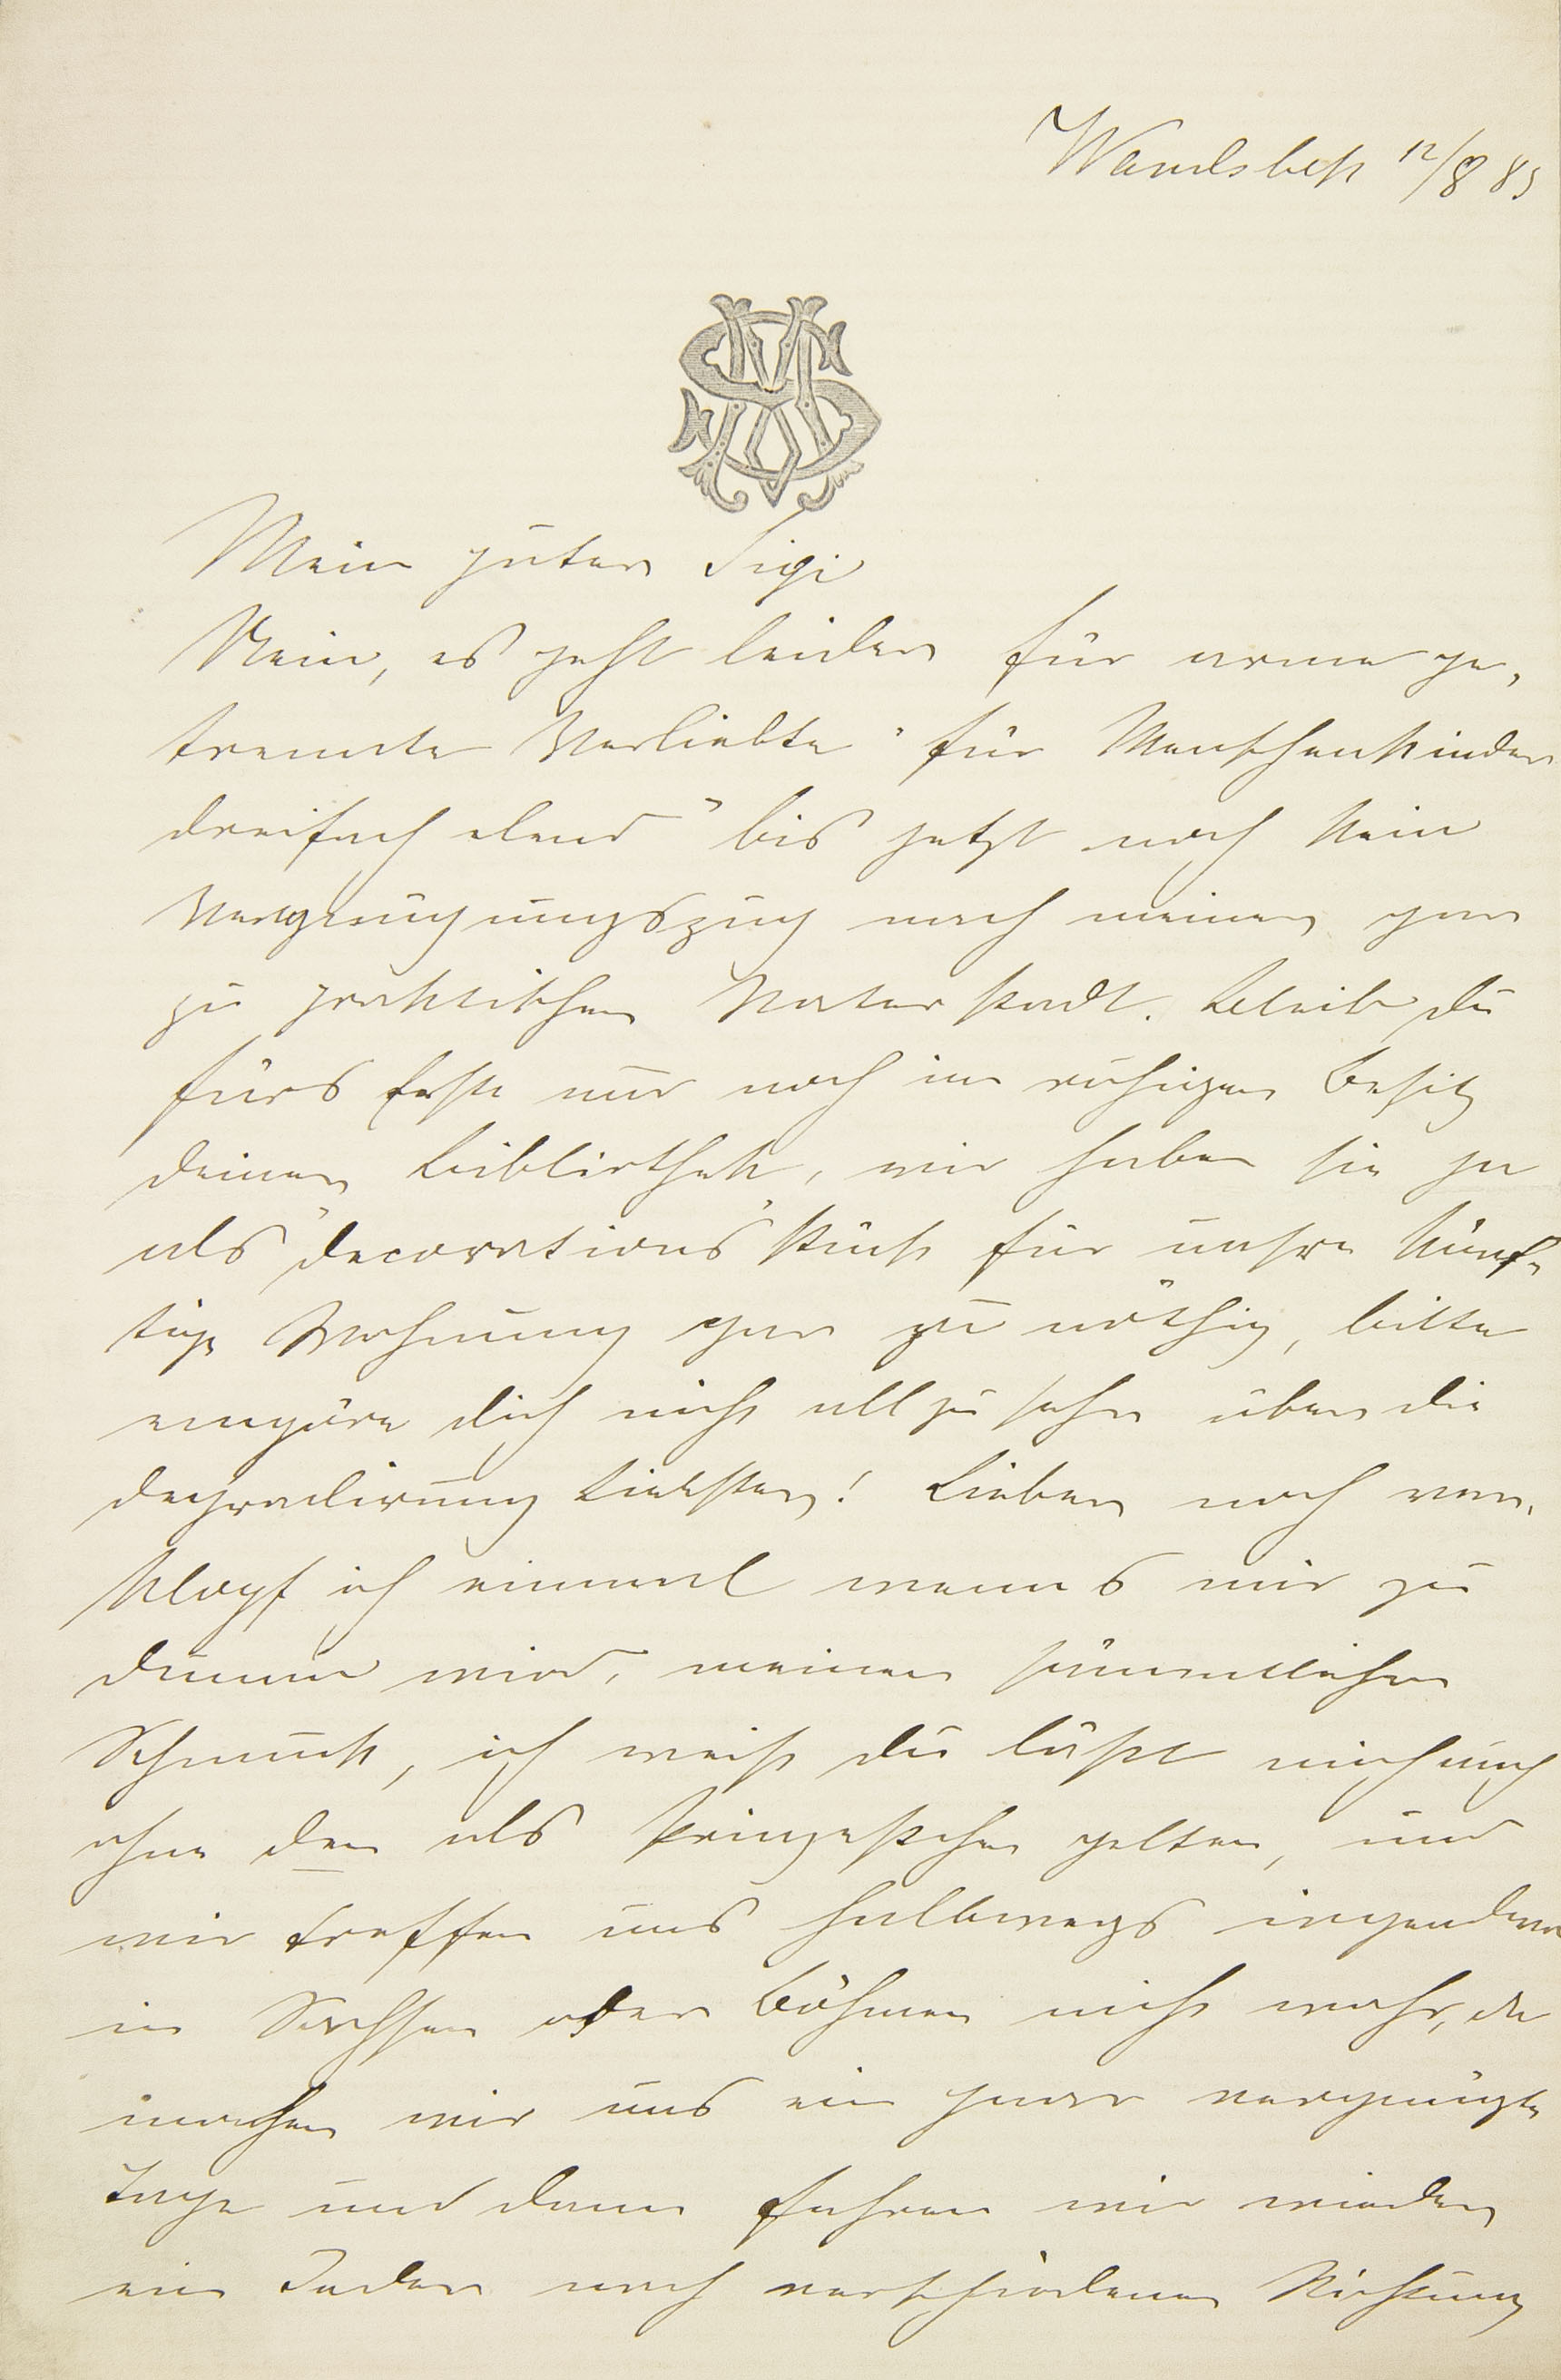 Wandsbek 12/8 85
MS
Mein guter Sigi
Nein, es geht leider für arme ge-
trennte Verliebte "für Menschenkinder
dreifach elend" bis jetzt noch kein
Vergnügungszug nach meiner gar
zu praktischen Vaterstadt. Bleib du
fürs Erste nur noch im ruhigen Besitz
deiner Bibliothek, wir haben sie ja
als "Decorations"stück für unsre künf-
tige Wohnung gar zu nöthig, bitte
empöre dich nicht allzu sehr über die
Degradirung Liebster! Lieber noch ver-
klopf ich einmal wenns mir zu
dumm wird, meinen sämmtlichen
Schmuck, ich weiß du läßt mich auch
ohne den als Prinzeßchen gelten, und
wir treffen uns halbwegs irgendwo
in Sachsen oder Böhmen nicht wahr, da
machen wir uns ein paar vergnügte
Tage und dann fahren wir wieder
ein Jeder nach verschiedener Richtung